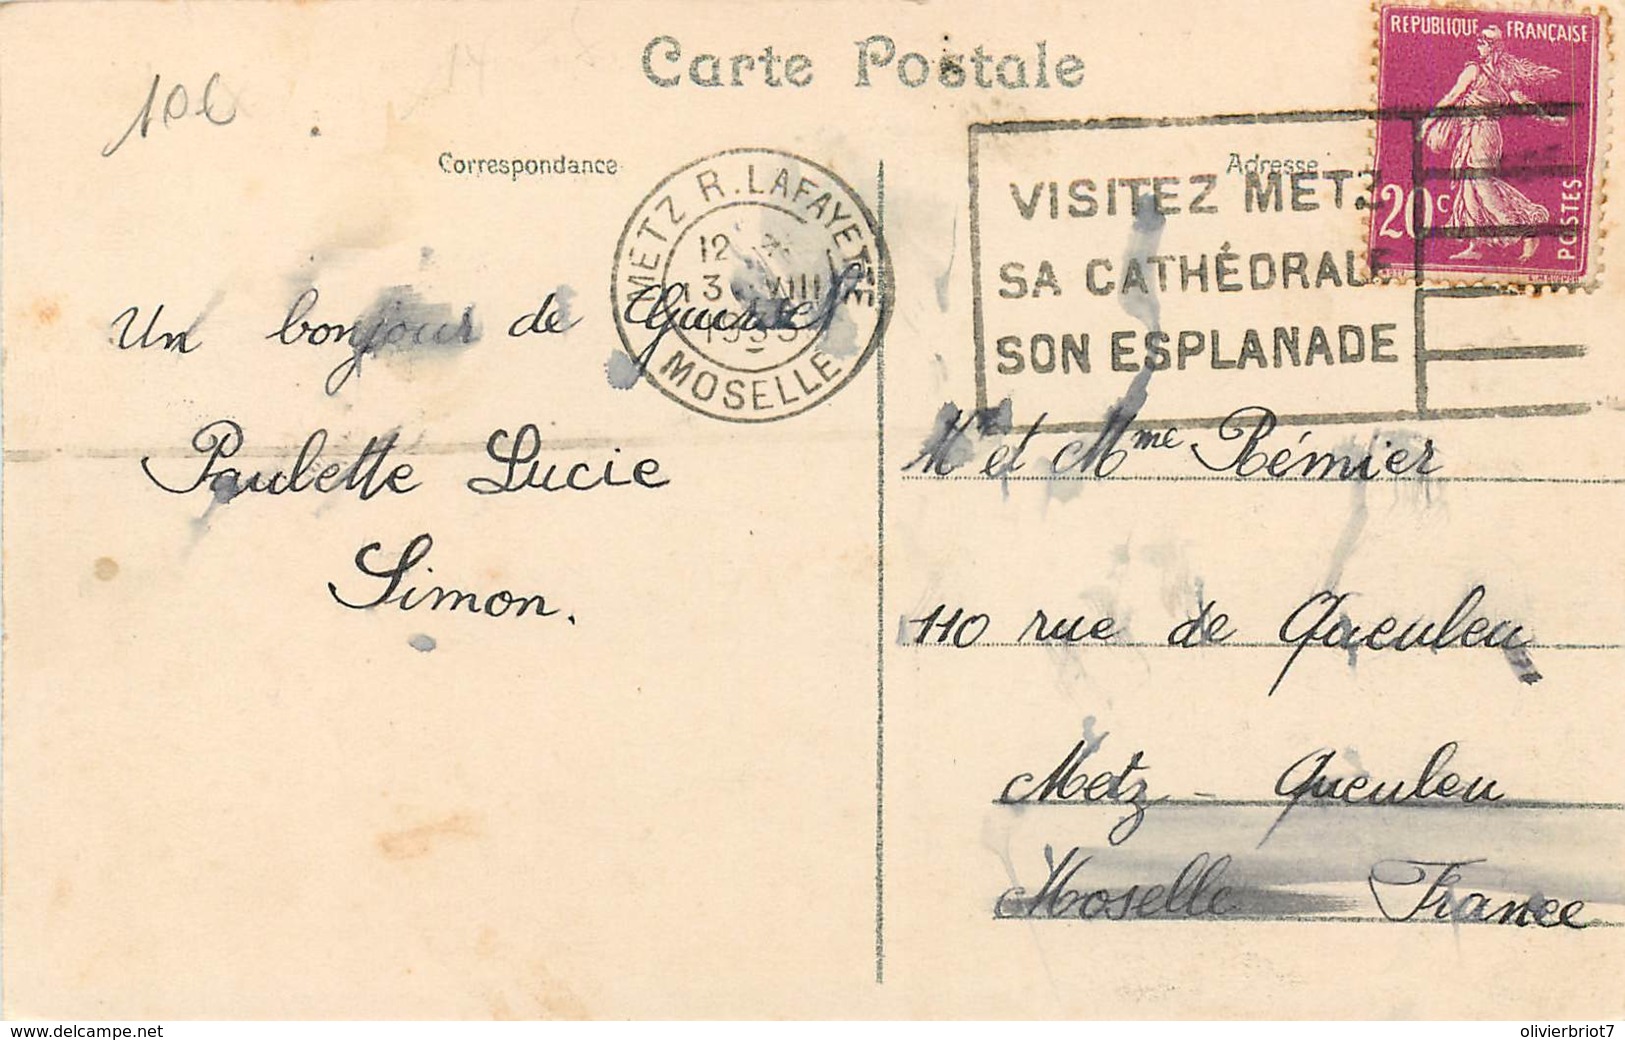 Carte Postale
10€
Correspondance
Adresse
METZ R. LAFAYETTE
12
13 VIII
MOSELLE
VISITEZ METZ
SA CATHÉDRALE
SON ESPLANADE
REPUBLIQUE FRANÇAISE
20c
POSTES
Un bonjour de
Paulette Lucie
Simon.
Mr et Mme Rémier
110 rue de Queuleu
Metz - Queuleu
Moselle France
www.delcampe.net
olivierbriot7